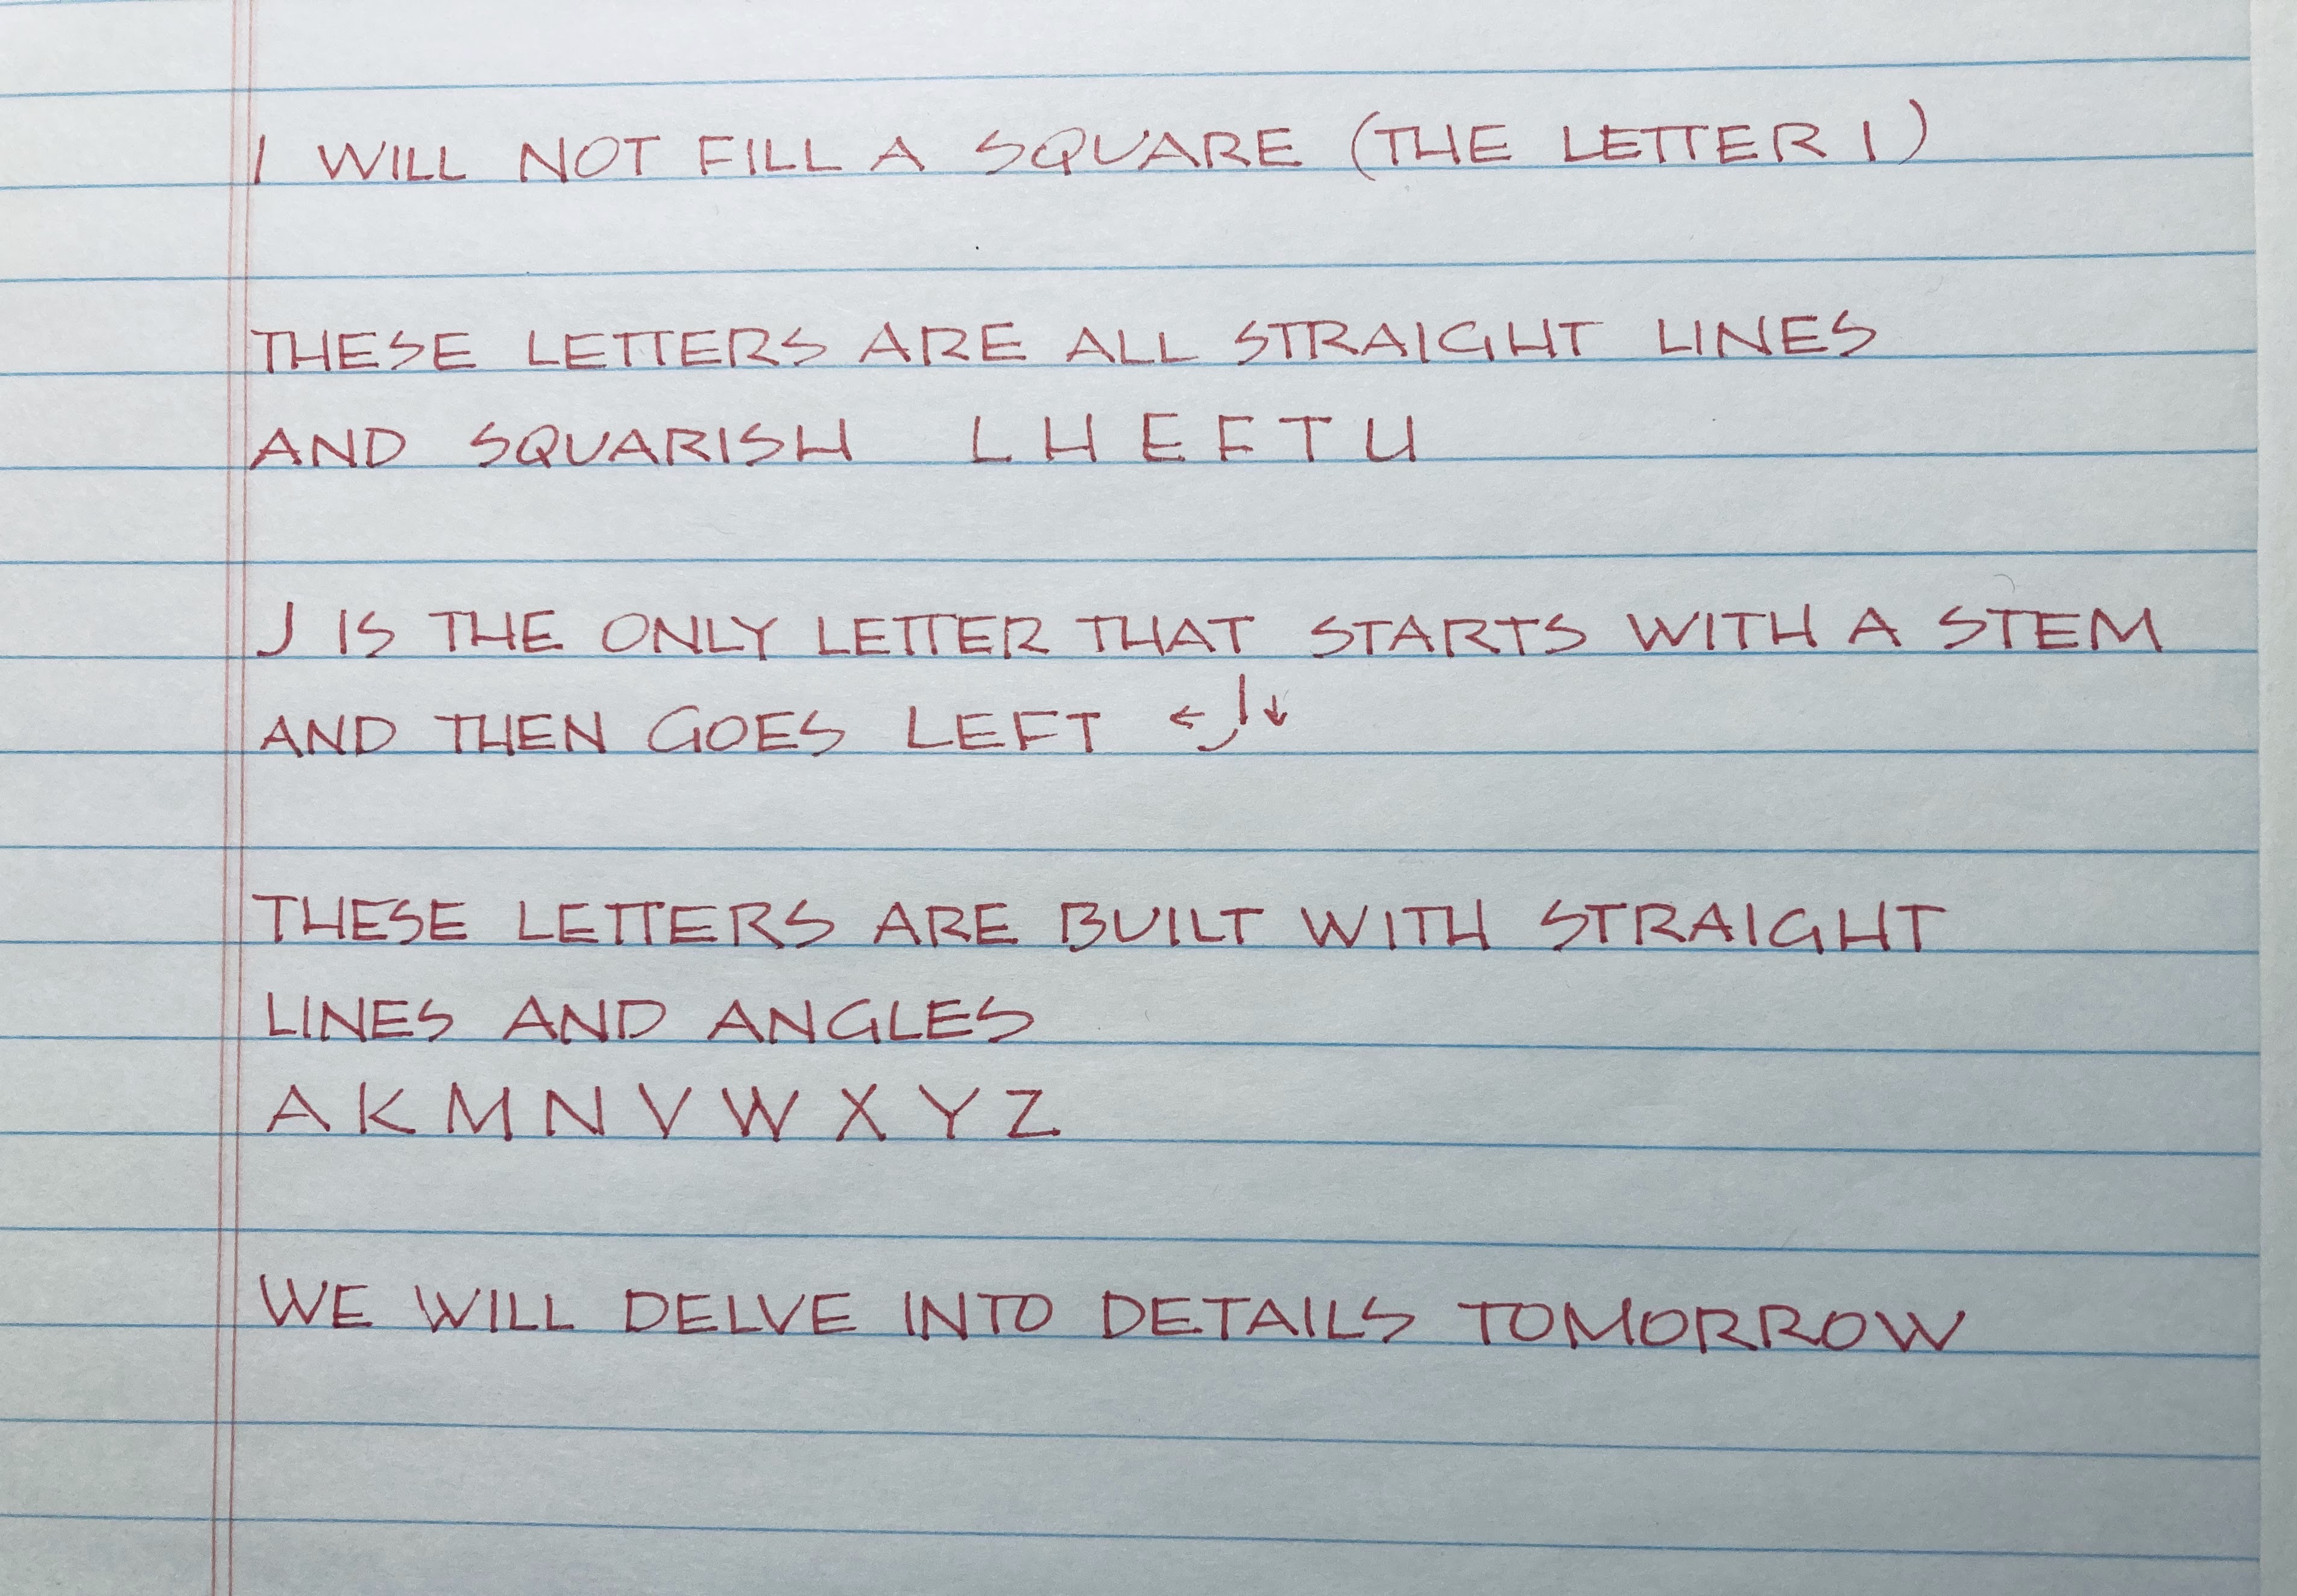 I WILL NOT FILL A SQUARE (THE LETTER I)
THESE LETTERS ARE ALL STRAIGHT LINES
AND SQUARISH L H E F T U
J IS THE ONLY LETTER THAT STARTS WITH A STEM
AND THEN GOES LEFT ← J ↓
THESE LETTERS ARE BUILT WITH STRAIGHT
LINES AND ANGLES
A K M N V W X Y Z
WE WILL DELVE INTO DETAILS TOMORROW